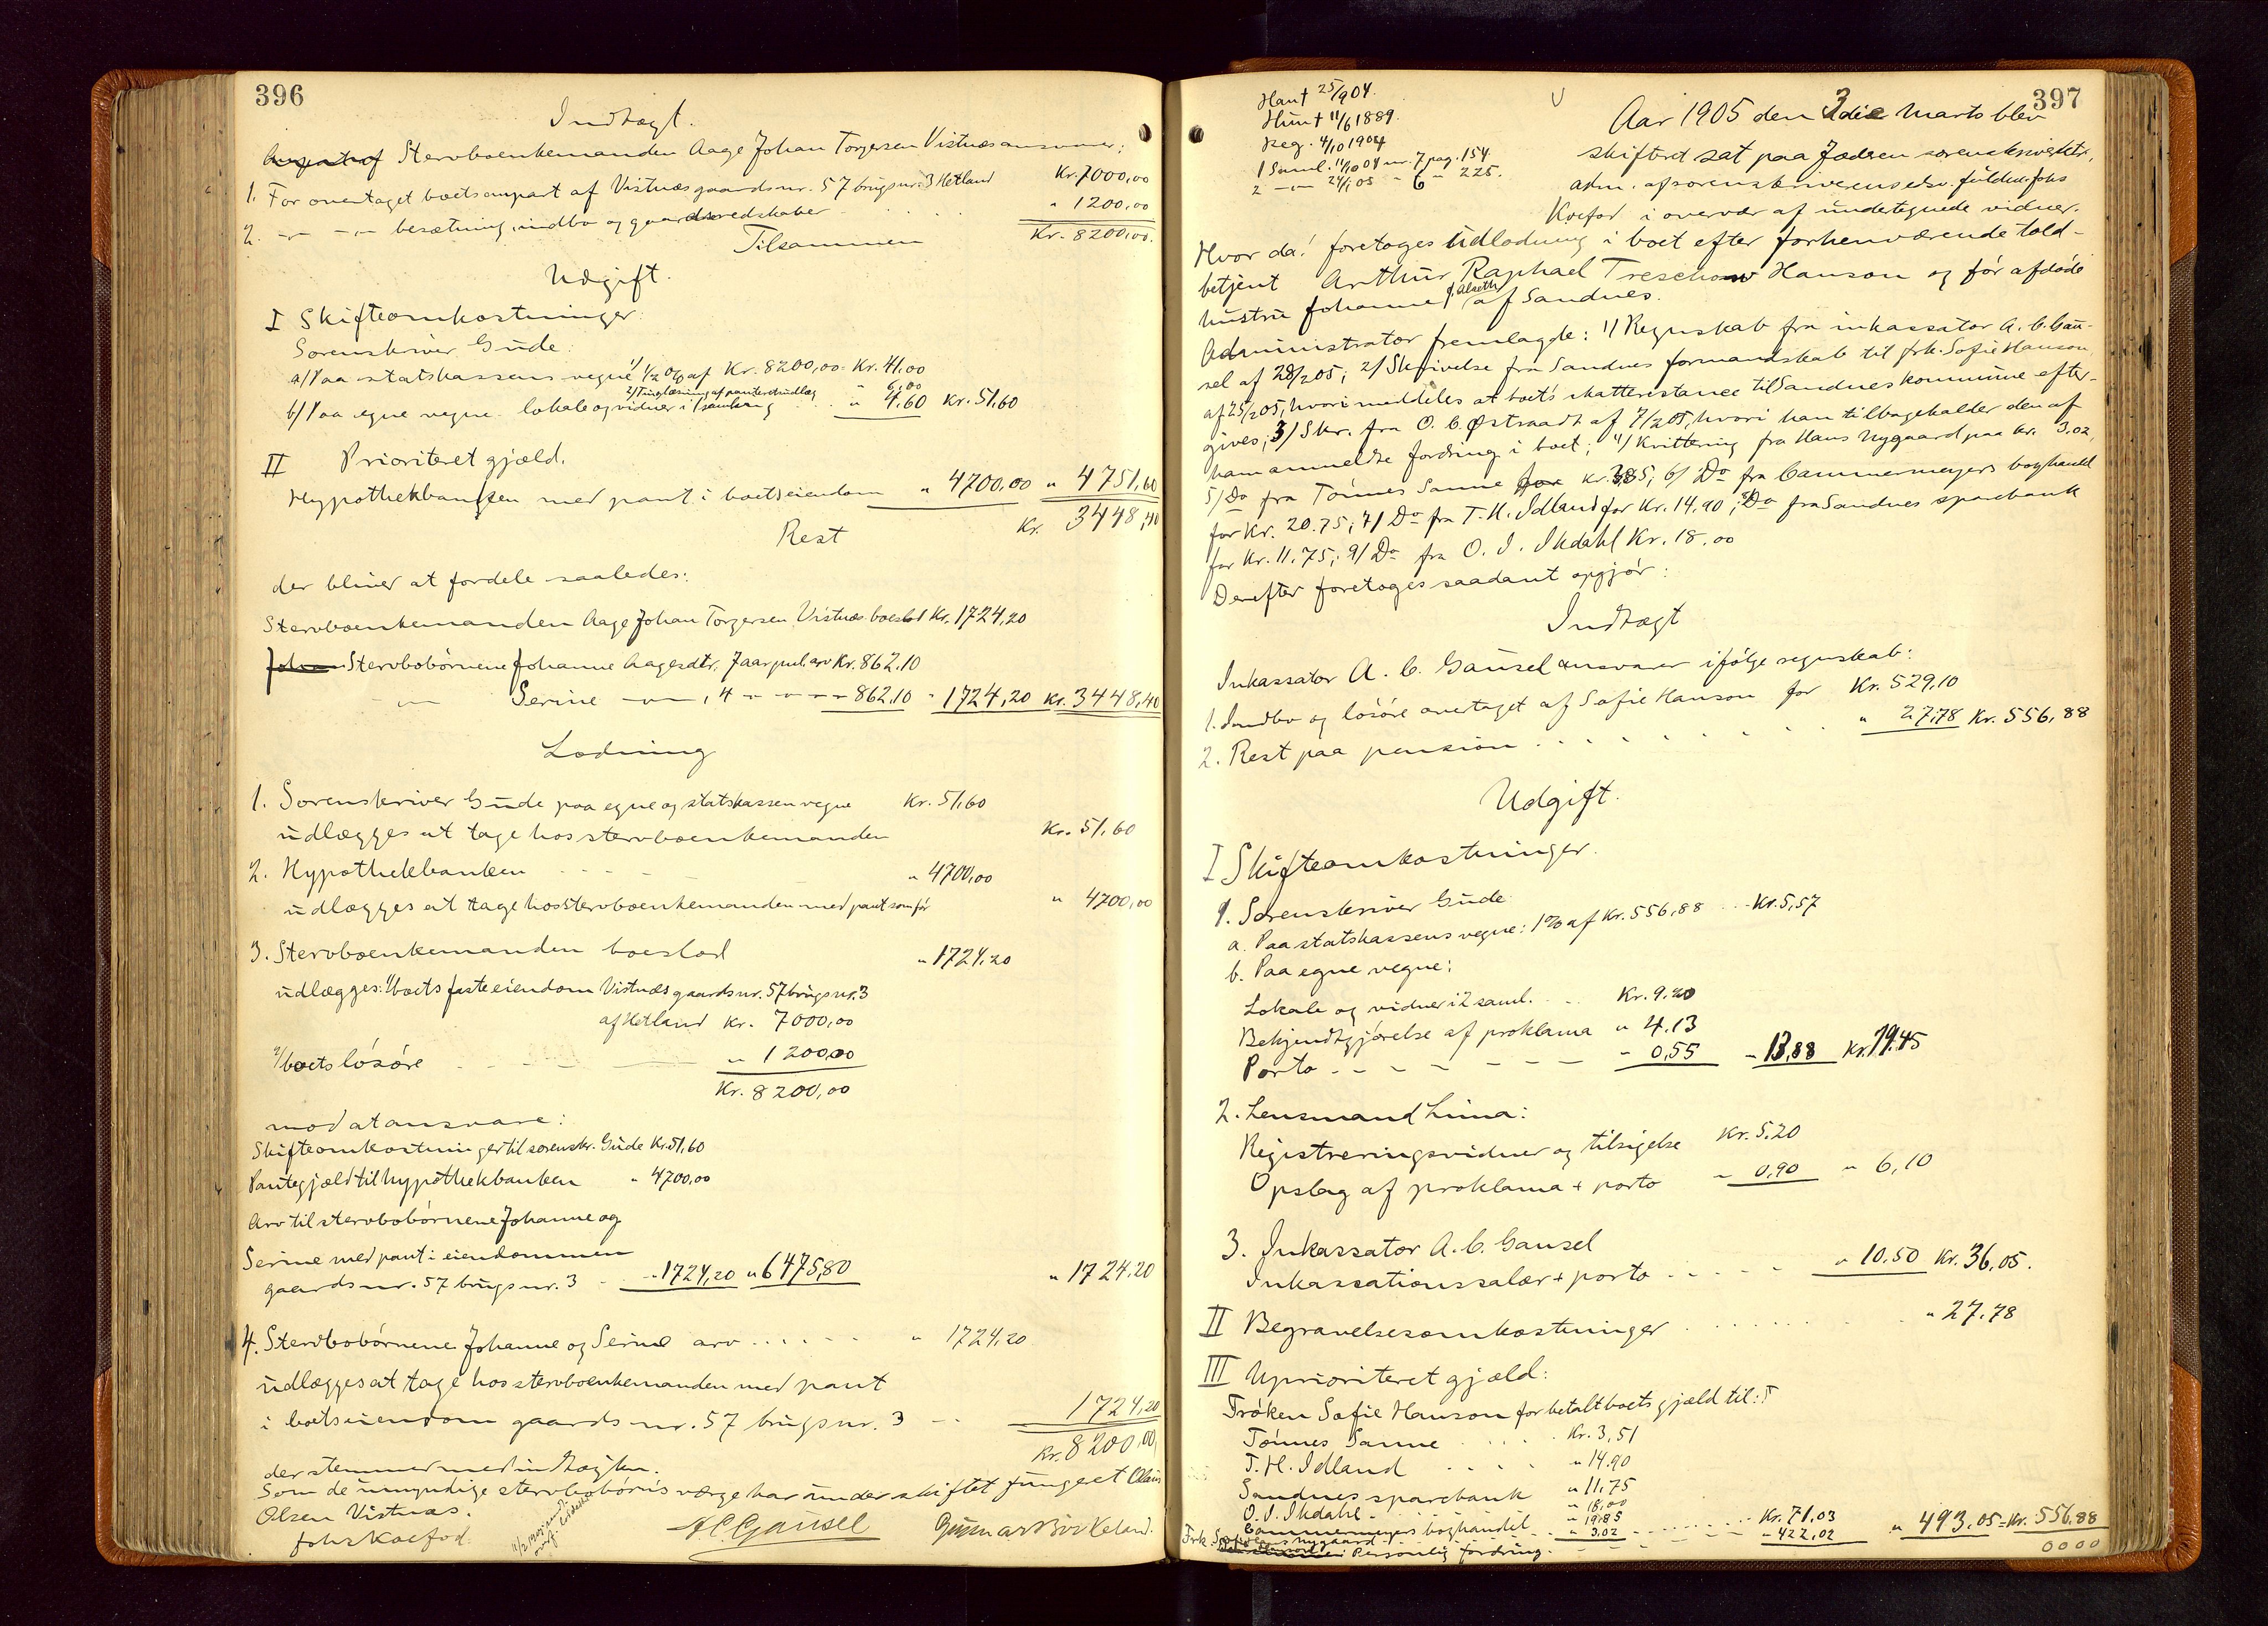 396
Indtægt.
Stervboenkemanden Aage Johan Torgersen Vistnæs ansvarer:
1. For overtaget boets anpart af Vistnæs gaardsnr. 57 brugsnr. 3 Hetland Kr. 7000,00
2. -"- -"- besætning, indbo og gaardsredskaber . . . . " 1200,00
Tilsammen Kr. 8200,00.
Udgift.
I Skifteomkostninger:
Sorenskriver Gude:
a/ Paa statskassens vegne 1/ 1/2 % af Kr. 8200,00 = Kr. 41,00
2/ Tinglæsning af panteretsudlæg " 6,00
b/ Paa egne vegne lokale og vidner i 1 samling . . " 4,60 Kr. 51,60
II Prioriteret gjæld.
Hypothekbanken med pant i boets eiendom " 4700,00 " 4751,60
Rest Kr. 3448,40
der bliver at fordele saaledes:
Stervboenkemanden Aage Johan Torgersen Vistnæs boeslod Kr. 1724,20
Stervbobørnene Johanne Aagesdtr. 7 aar gml. arv Kr. 862.10
-"- Serine -"-, 4 - " - " - 862,10 " 1724,20 Kr. 3448,40
Lodning
1. Sorenskriver Gude paa egne og statskassen vegne Kr. 51,60
udlægges at tage hos stervboenkemanden Kr. 51,60
2. Hypothekbanken . . . . " 4700,00
udlægges at tage hos stervboenkemanden med pant som før " 4700,00
3. Stervboenkemanden boeslod " 1724,20
udlægges: 1/ boets faste eiendom Vistnæs gaardsnr. 57 brugsnr. 3
af Hetland Kr. 7000,00
2/ boets løsøre " 1200,00
Kr. 8200,00
mod at ansvare:
Skifteomkostninger til sorenskr. Gude Kr. 51,60
Pantegjæld til hypothekbanken " 4700,00
Arv til stervbobørnene Johanne og
Serine med pant i eiendommen
gaardsnr. 57 brugsnr. 3 - " 1724,20 " 6475,80 " 1724,20
4. Stervbobørnene Johanne og Serine arv . . . . . " 1724,20
udlægges at tage hos stervboenkemanden med pant
i boets eiendom gaardsnr. 57 brugsnr. 3 - . . 1724,20
Kr. 8200,00
der stemmer med indtægten.
Som de umyndige stervbobørns værge har under skiftet fungeret Olaus
Olsen Vistnæs.
Johs Koefod A C Gausel Gunnar
397
Han † 25/9 04.
Hun † 11/6 1889.
Reg. 4/10 1904
1 Saml. 11/10 04 nr. 7 pag. 154
2 -"- 24/1 05 " 6 " 225.
Aar 1905 den 3die Marts blev
skifteret sat paa Jædren sorenskriverktr.,
adm. af sorenskriverens edsv. fuldm. Johs
Koefod i overvær af undertegnede vidner.
Hvor da! foretoges udlodning i boet efter forhenværende told-
betjent Arthur Raphael Treschow Hanson og før afdøde
hustru Johanne f. Alseth af Sandnes.
Administrator fremlagde: 1/ Regnskab fra inkassator A. C. Gau-
sel af 28/2 05; 2/ Skrivelse fra Sandnes formandskab til frk. Sofie Hanson
af 25/2 05, hvori meddeles at boets skatterestance til Sandnes kommune efter-
gives; 3/ Skr. fra O. C. Østraadt af 7/2 05, hvori han tilbageholder den af
ham anmeldte fordring i boet; 4/ Kvittering fra Hans Nygaard paa kr. 3.02,
5/ Do fra Tønnes Sanne kr. 3.85; 6/ Do fra Cammermeyers boghandel
for Kr. 20.75; 7/ Do fra T. H. Idland for Kr. 14,90; 8/ Do fra Sandnes sparebank
for Kr. 11.75; 9/ Do fra O. I. Ikdahl Kr. 18.00
Derefter foretoges saadant opgjør:
Indtægt
Inkassator A. C. Gausel ansvarer ifølge regnskab:
1. Indbo og løsøre overtaget af Sofie Hanson for Kr. 529,10
2. Rest paa pension . . . . . . . . " 27,78 Kr. 556,88
Udgift.
I Skifteomkostninger.
1. Sorenskriver Gude
a. Paa statskassens vegne: 1% af Kr. 556,88 . . . Kr. 5,57
b. Paa egne vegne:
Lokale og vidner i 2 saml. . . Kr. 9.20
Bekjendtgjørelse af proklama " 4.13
Porto - - - - - - - " 0,55 " 13,88 Kr. 19.45
2. Lensmand Lima:
Registreringsvidner og tilsigelse Kr. 5.20
Opslag af proklama + porto " 0,90 " 6,10
3. Inkassator A. C. Gausel
Inkassationssalær + porto . . . . . " 10.50 Kr. 36,05.
II Begravelsesomkostninger . . . . . . " 27.78
III Uprioriteret gjæld:
Frøken Sofie Hanson for betalt boets gjæld til:
Tønnes Sanne . . . . Kr. 3,51
T. H. Idland . . . . " 14.90
Sandnes sparebank " 11,75
O. I. Ikdahl - . . . " 18,00
Cammermeyers boghandel . . " 19,85
Hans Nygaard - . . " 3.02 - . . . . . Kr. 71.03
Personlig fordring. - - - " 422,02 " 493,05 = Kr. 556,88
0000